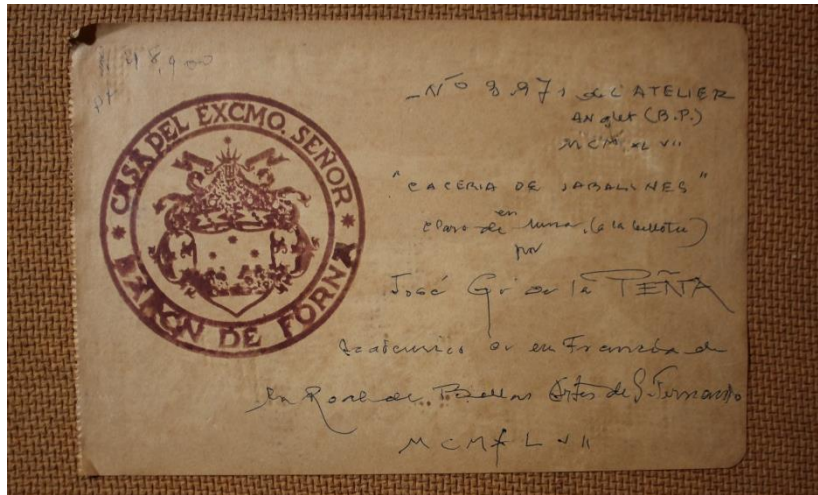 CASA DEL EXCMO. SEÑOR
BARÓN DE FORNA
Nº 8.971 de L'ATELIER
ANglet (B.P.)
MCM XL VII
"CACERIA DE JABALINES"
en
Claro de luna, (a la bellota)
por
José Gª de la PEÑA
Academico en Francia de
la Real de Bellas Artes de S. Fernando
MCMXLVII